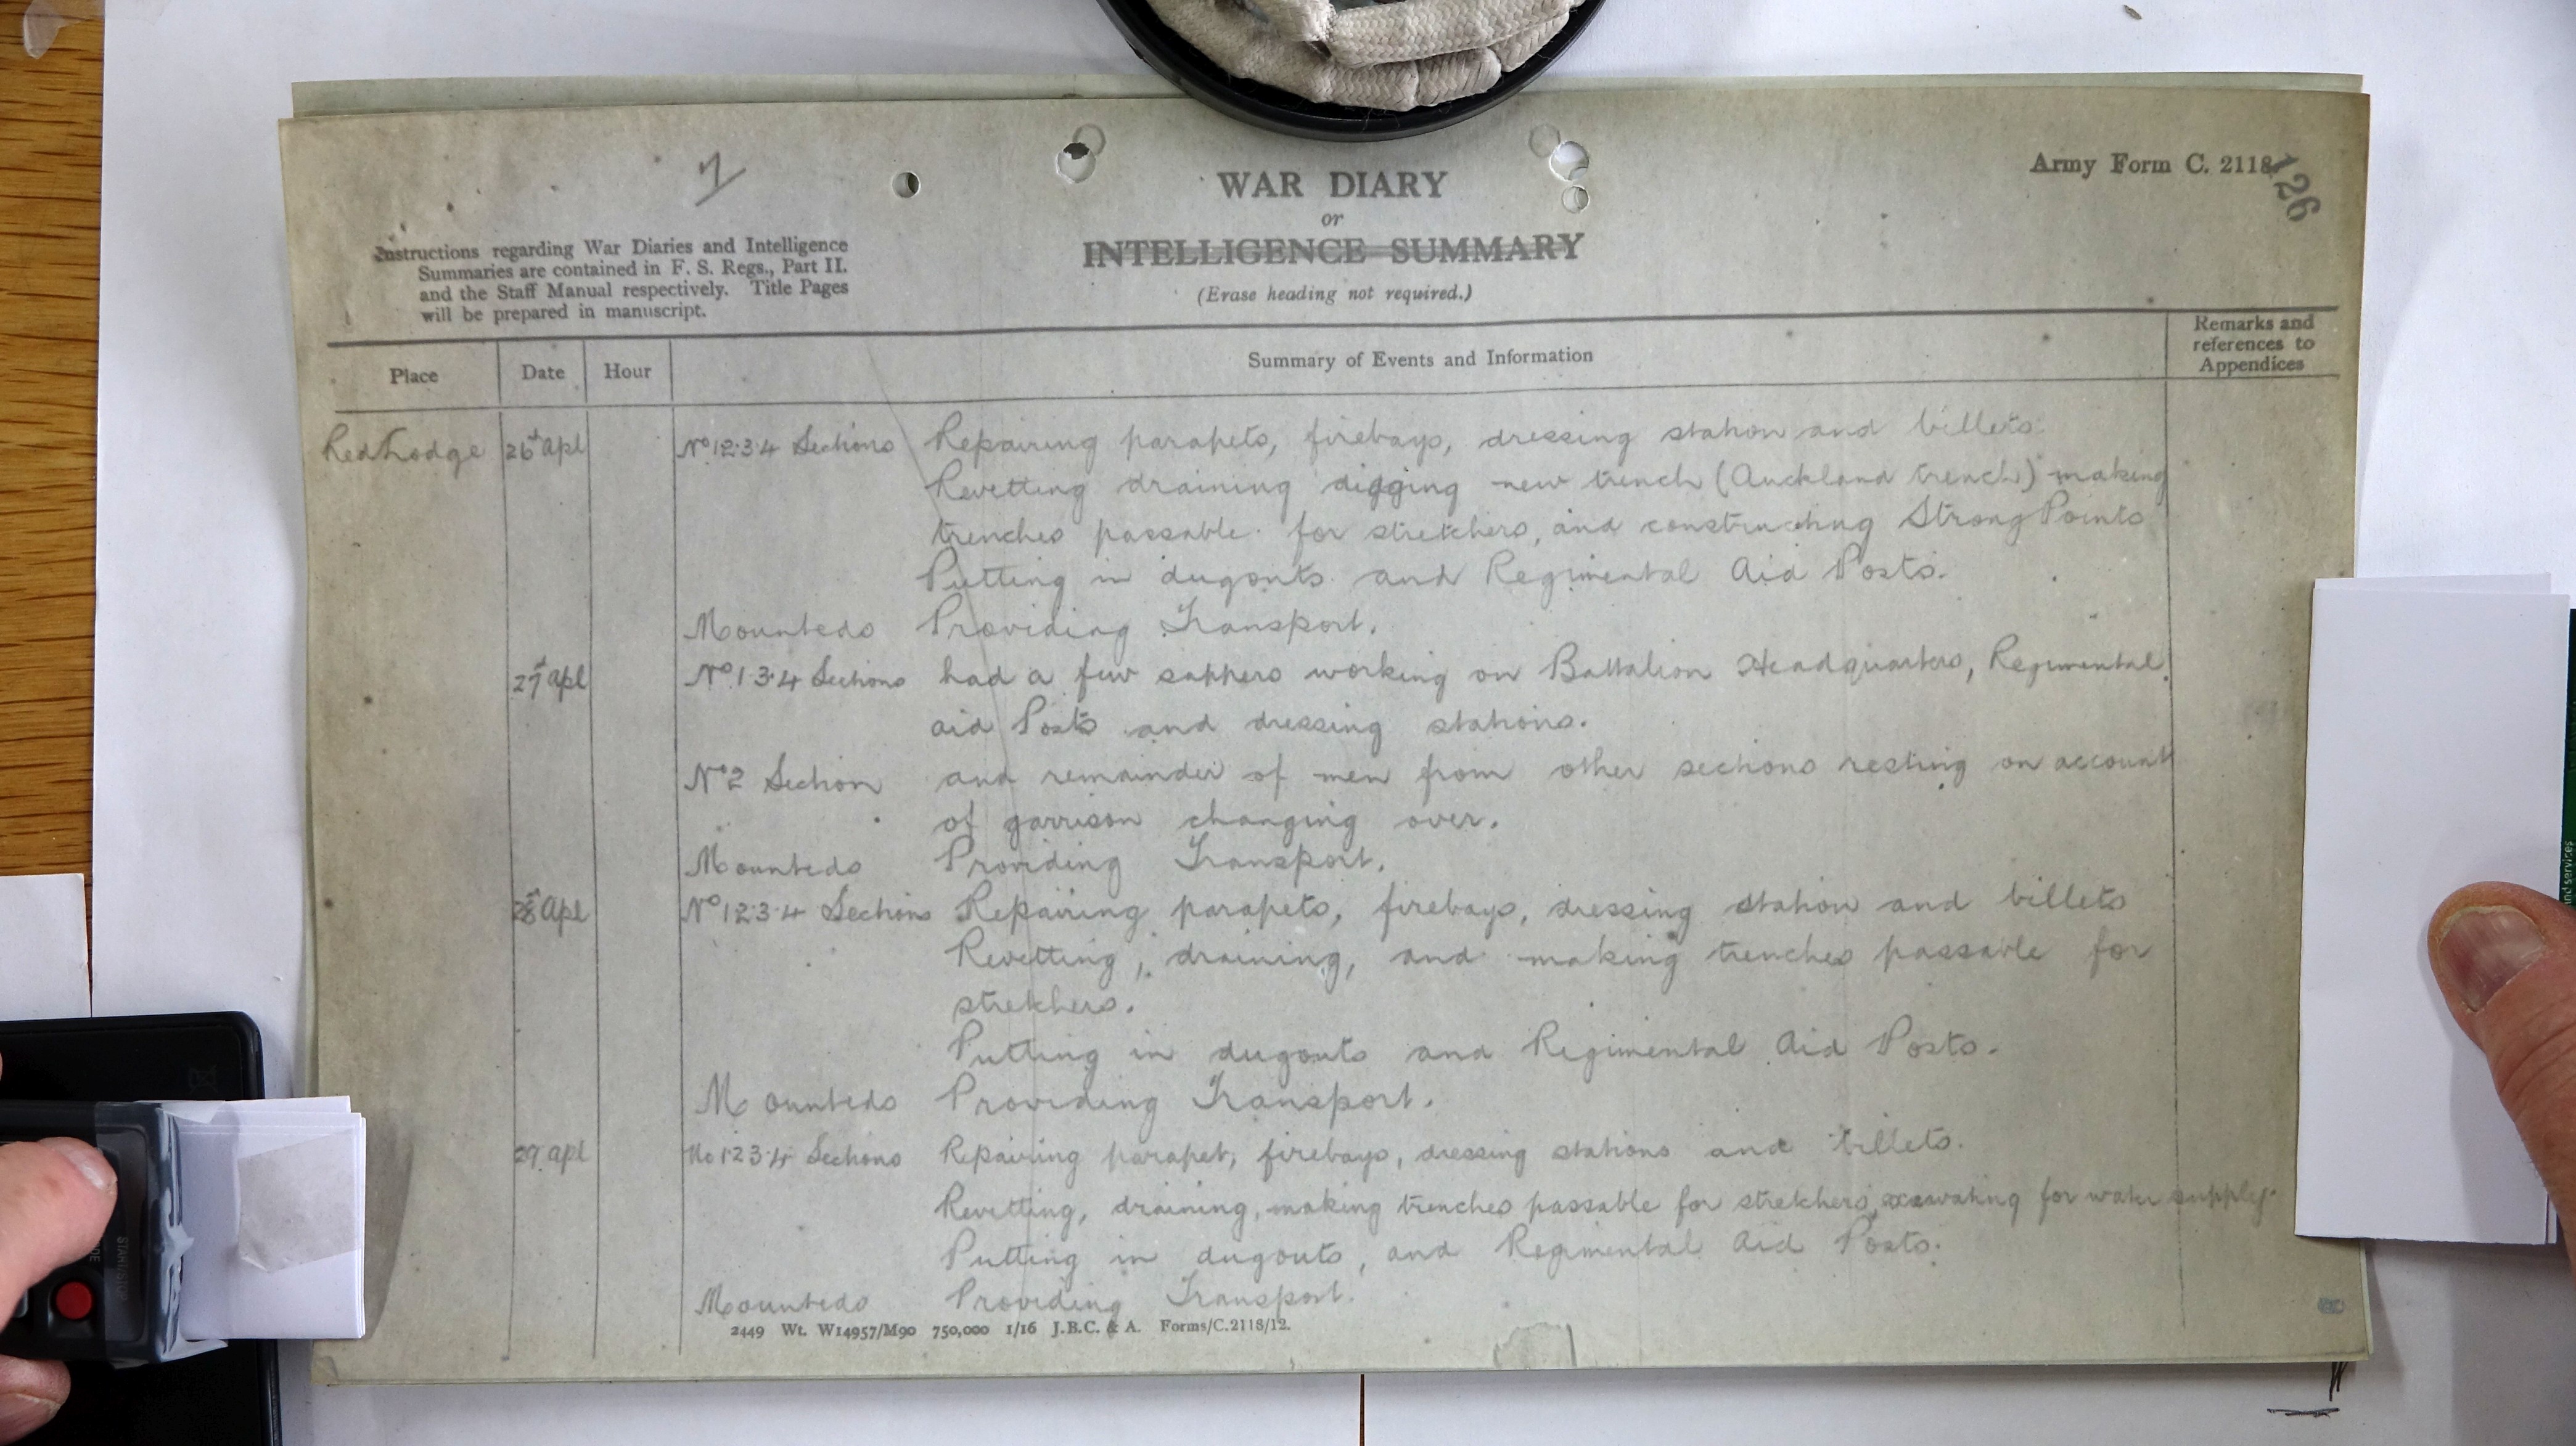 7
Army Form C. 2118
126
WAR DIARY
or
INTELLIGENCE SUMMARY
(Erase heading not required.)
Instructions regarding War Diaries and Intelligence
Summaries are contained in F. S. Regs., Part II.
and the Staff Manual respectively. Title Pages
will be prepared in manuscript.
Place Date Hour Summary of Events and Information Remarks and
references to
Appendices
Red Lodge 26 Apl No 1.2.3.4 Sections Repairing parapets, firebays, dressing station and billets.
Revetting draining digging new trench (Auckland trench) making
trenches passable for stretchers, and constructing Strong Points
Putting in dugouts and Regimental Aid Posts.
Mounteds Providing Transport.
27 Apl No 1.3.4 Sections had a few sappers working on Battalion Headquarters, Regimental
aid Posts and dressing stations.
No 2 Section and remainder of men from other sections resting on account
of garrison changing over.
Mounteds Providing Transport.
28 Apl No 1.2.3.4 Sections Repairing parapets, firebays, dressing station and billets
Revetting, draining, and making trenches passable for
stretchers.
Putting in dugouts and Regimental Aid Posts.
Mounteds Providing Transport.
29 apl No 1.2.3.4 Sections Repairing parapet, firebays, dressing stations and billets.
Revetting, draining, making trenches passable for stretchers, excavating for water supply.
Putting in dugouts, and Regimental Aid Posts.
Mounteds Providing Transport.
2449 Wt. W14957/M90 750,000 1/16 J.B.C. & A. Forms/C.2118/12.